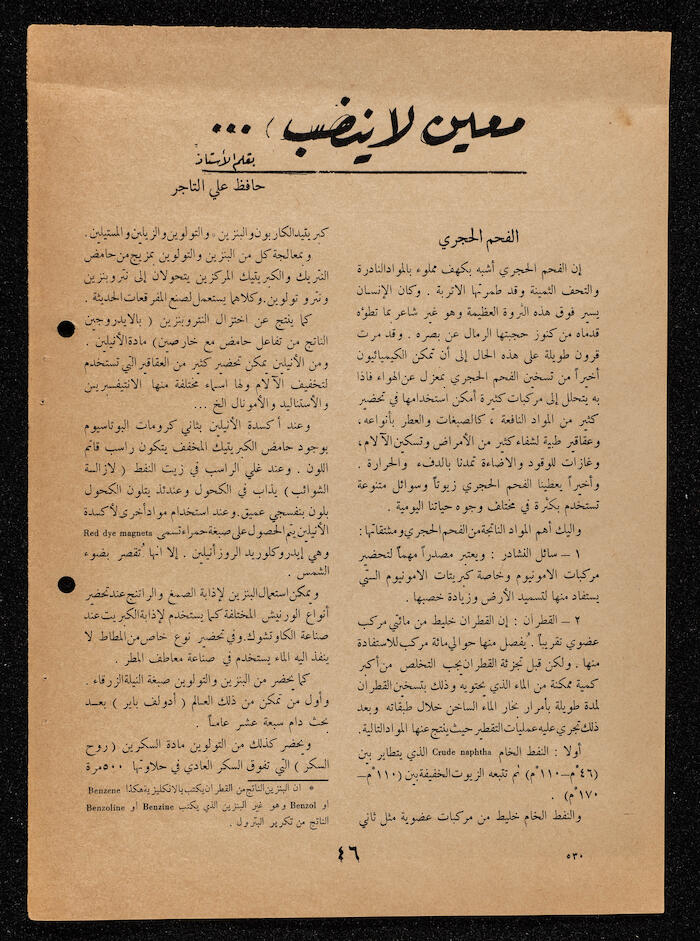 معين لا ينضب، ...
بقلم الأستاذ
حافظ علي التاجر
الفحم الحجري
إن الفحم الحجري أشبه بكهف مملوء بالمواد النادرة
والتحف الثمينة وقد طمرتها الاتربة . وكان الإنسان
يسير فوق هذه الثروة العظيمة وهو غير شاعر بما تطوّه
قدماه من كنوز حجبتها الرمال عن بصره . وقد مرت
قرون طويلة على هذه الحال إلى أن تمكن الكيميائيون
أخيراً من تسخين الفحم الحجري بمعزل عن الهواء فاذا
به يتحلل إلى مركبات كثيرة أمكن استخدامها في تحضير
كثير من المواد النافعة ، كالصبغات والعطر بأنواعه،
وعقاقير طبية لشفاء كثير من الأمراض وتسكين الآلام،
وغازات للوقود والاضاءة تمدنا بالدفء والحرارة .
وأخيراً يعطينا الفحم الحجري زيوتاً وسوائل متنوعة
تستخدم بكثرة في مختلف وجوه حياتنا اليومية .
واليك أهم المواد الناتجة من الفحم الحجري ومشتقاتها:
١ – سائل النشادر : ويعتبر مصدراً مهماً لتحضير
مركبات الامونيوم وخاصة كبريتات الامونيوم التي
يستفاد منها لتسميد الأرض وزيادة خصبها .
٢ – القطران : إن القطران خليط من مائتي مركب
عضوي تقريباً . يُفصل منها حوالي مائة مركب للاستفادة
منها . ولكن قبل تجزئة القطران يجب التخلص من أكبر
كمية ممكنة من الماء الذي يحتويه وذلك بتسخين القطران
لمدة طويلة بأمرار بخار الماء الساخن خلال طبقاته وبعد
ذلك تجري عليه عمليات التقطير حيث ينتج عنها المواد التالية.
أولا : النفط الخام Crude naphtha الذي يتطاير بين
(٤٦°م–١١٠°م) ثم تتبعه الزيوت الخفيفة بين (١١٠°م–
١٧٠°م) .
والنفط الخام خليط من مركبات عضوية مثل ثاني
كبريتيد الكاربون والبنزين* والتولوين والزيلين والمستيلين.
وبمعالجة كل من البنزين والتولوين بمزيج من حامض
النتريك والكبريتيك المركزين يتحولان إلى نتروبنزين
ونترو تولوين. وكلاهما يستعمل لصنع المفرقعات الحديثة .
كما ينتج عن اختزال النتروبنزين ( بالايدروجين
الناتج من تفاعل حامض مع خارصين) مادة الأنيلين .
ومن الأنيلين يمكن تحضير كثير من العقاقير التي تستخدم
لتخفيف الآلام ولها اسماء مختلفة منها الانتيفبرين
والأستناليد والأمونال الخ ...
وعند أكسدة الأنيلين بثاني كرومات البوتاسيوم
بوجود حامض الكبريتيك المخفف يتكون راسب قاتم
اللون . وعند غلي الراسب في زيت النفط ( لازالة
الشوائب ) يذاب في الكحول وعندئذ يتلون الكحول
بلون بنفسجي عميق. وعند استخدام مواد أخرى لأكسدة
الأنيلين يتم الحصول على صبغة حمراء تسمى Red dye magnets
وهي إيدروكلوريد الروزأنيلين . إلا انها تُقصر بضوء
الشمس .
ويمكن استعمال البنزين لإذابة الصمغ والراتنج عند تحضير
أنواع الورنيش المختلفة كما يستخدم لإذابة الكبريت عند
صناعة الكاوتشوك. وفي تحضير نوع خاص من المطاط لا
ينفذ اليه الماء يستخدم في صناعة معاطف المطر .
كما يحضر من البنزين والتولوين صبغة النيلة الزرقاء .
وأول من تمكن من ذلك العالم ( أدولف باير ) بعد
بحث دام سبعة عشر عاماً .
ويحضر كذلك من التولوين مادة السكرين ( روح
السكر ) التي تفوق السكر العادي في حلاوتها ٥٠٠ مرة
* ان البنزين الناتج من القطران يكتب بالانكليزية هكذا Benzene
او Benzol وهو غير البنزين الذي يكتب Benzine او Benzoline
الناتج من تكرير البترول .
٤٦
٥٣٠